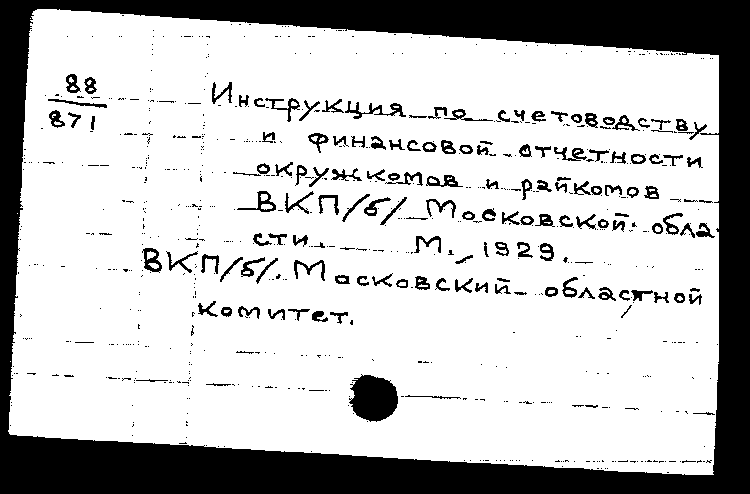 88
871
Инструкция по счетоводству
и финансовой отчетности
окружкомов и райкомов
ВКП/б/ Московской обла-
сти. М., 1929.
ВКП/б/. Московский областной
комитет.